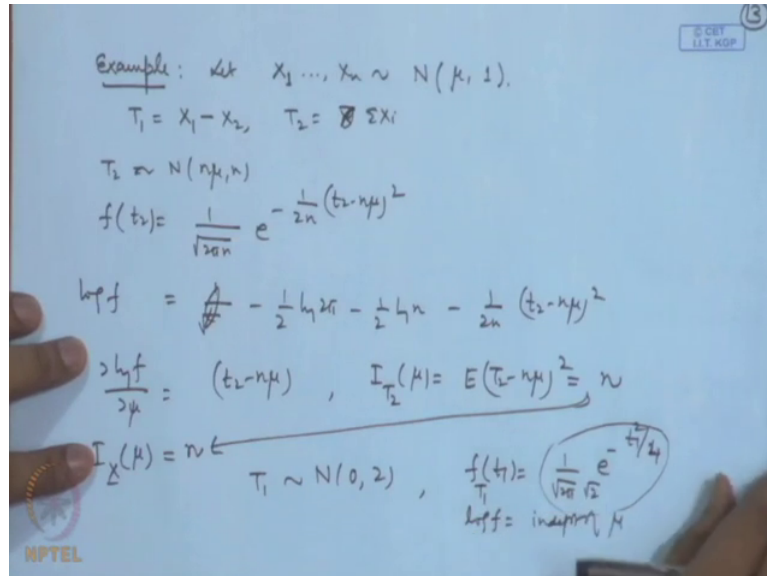 13
© CET
I.I.T. KGP
Example: Let X₁ ..., Xₙ ~ N(μ, 1).
T₁ = X₁ - X₂, T₂ = ΣXi
T₂ ~ N(nμ, n)
f(t₂) = 1/√(2πn) e^(-1/(2n) (t₂-nμ)²)
log f = - 1/2 ln 2π - 1/2 ln n - 1/(2n) (t₂-nμ)²
∂ log f/∂μ = (t₂-nμ), I_T₂(μ) = E(T₂-nμ)² = n
I_X(μ) = n
T₁ ~ N(0, 2), f_T₁(t₁) = 1/(√2π √2) e^(-t₁²/4)
log f = indep of μ
NPTEL